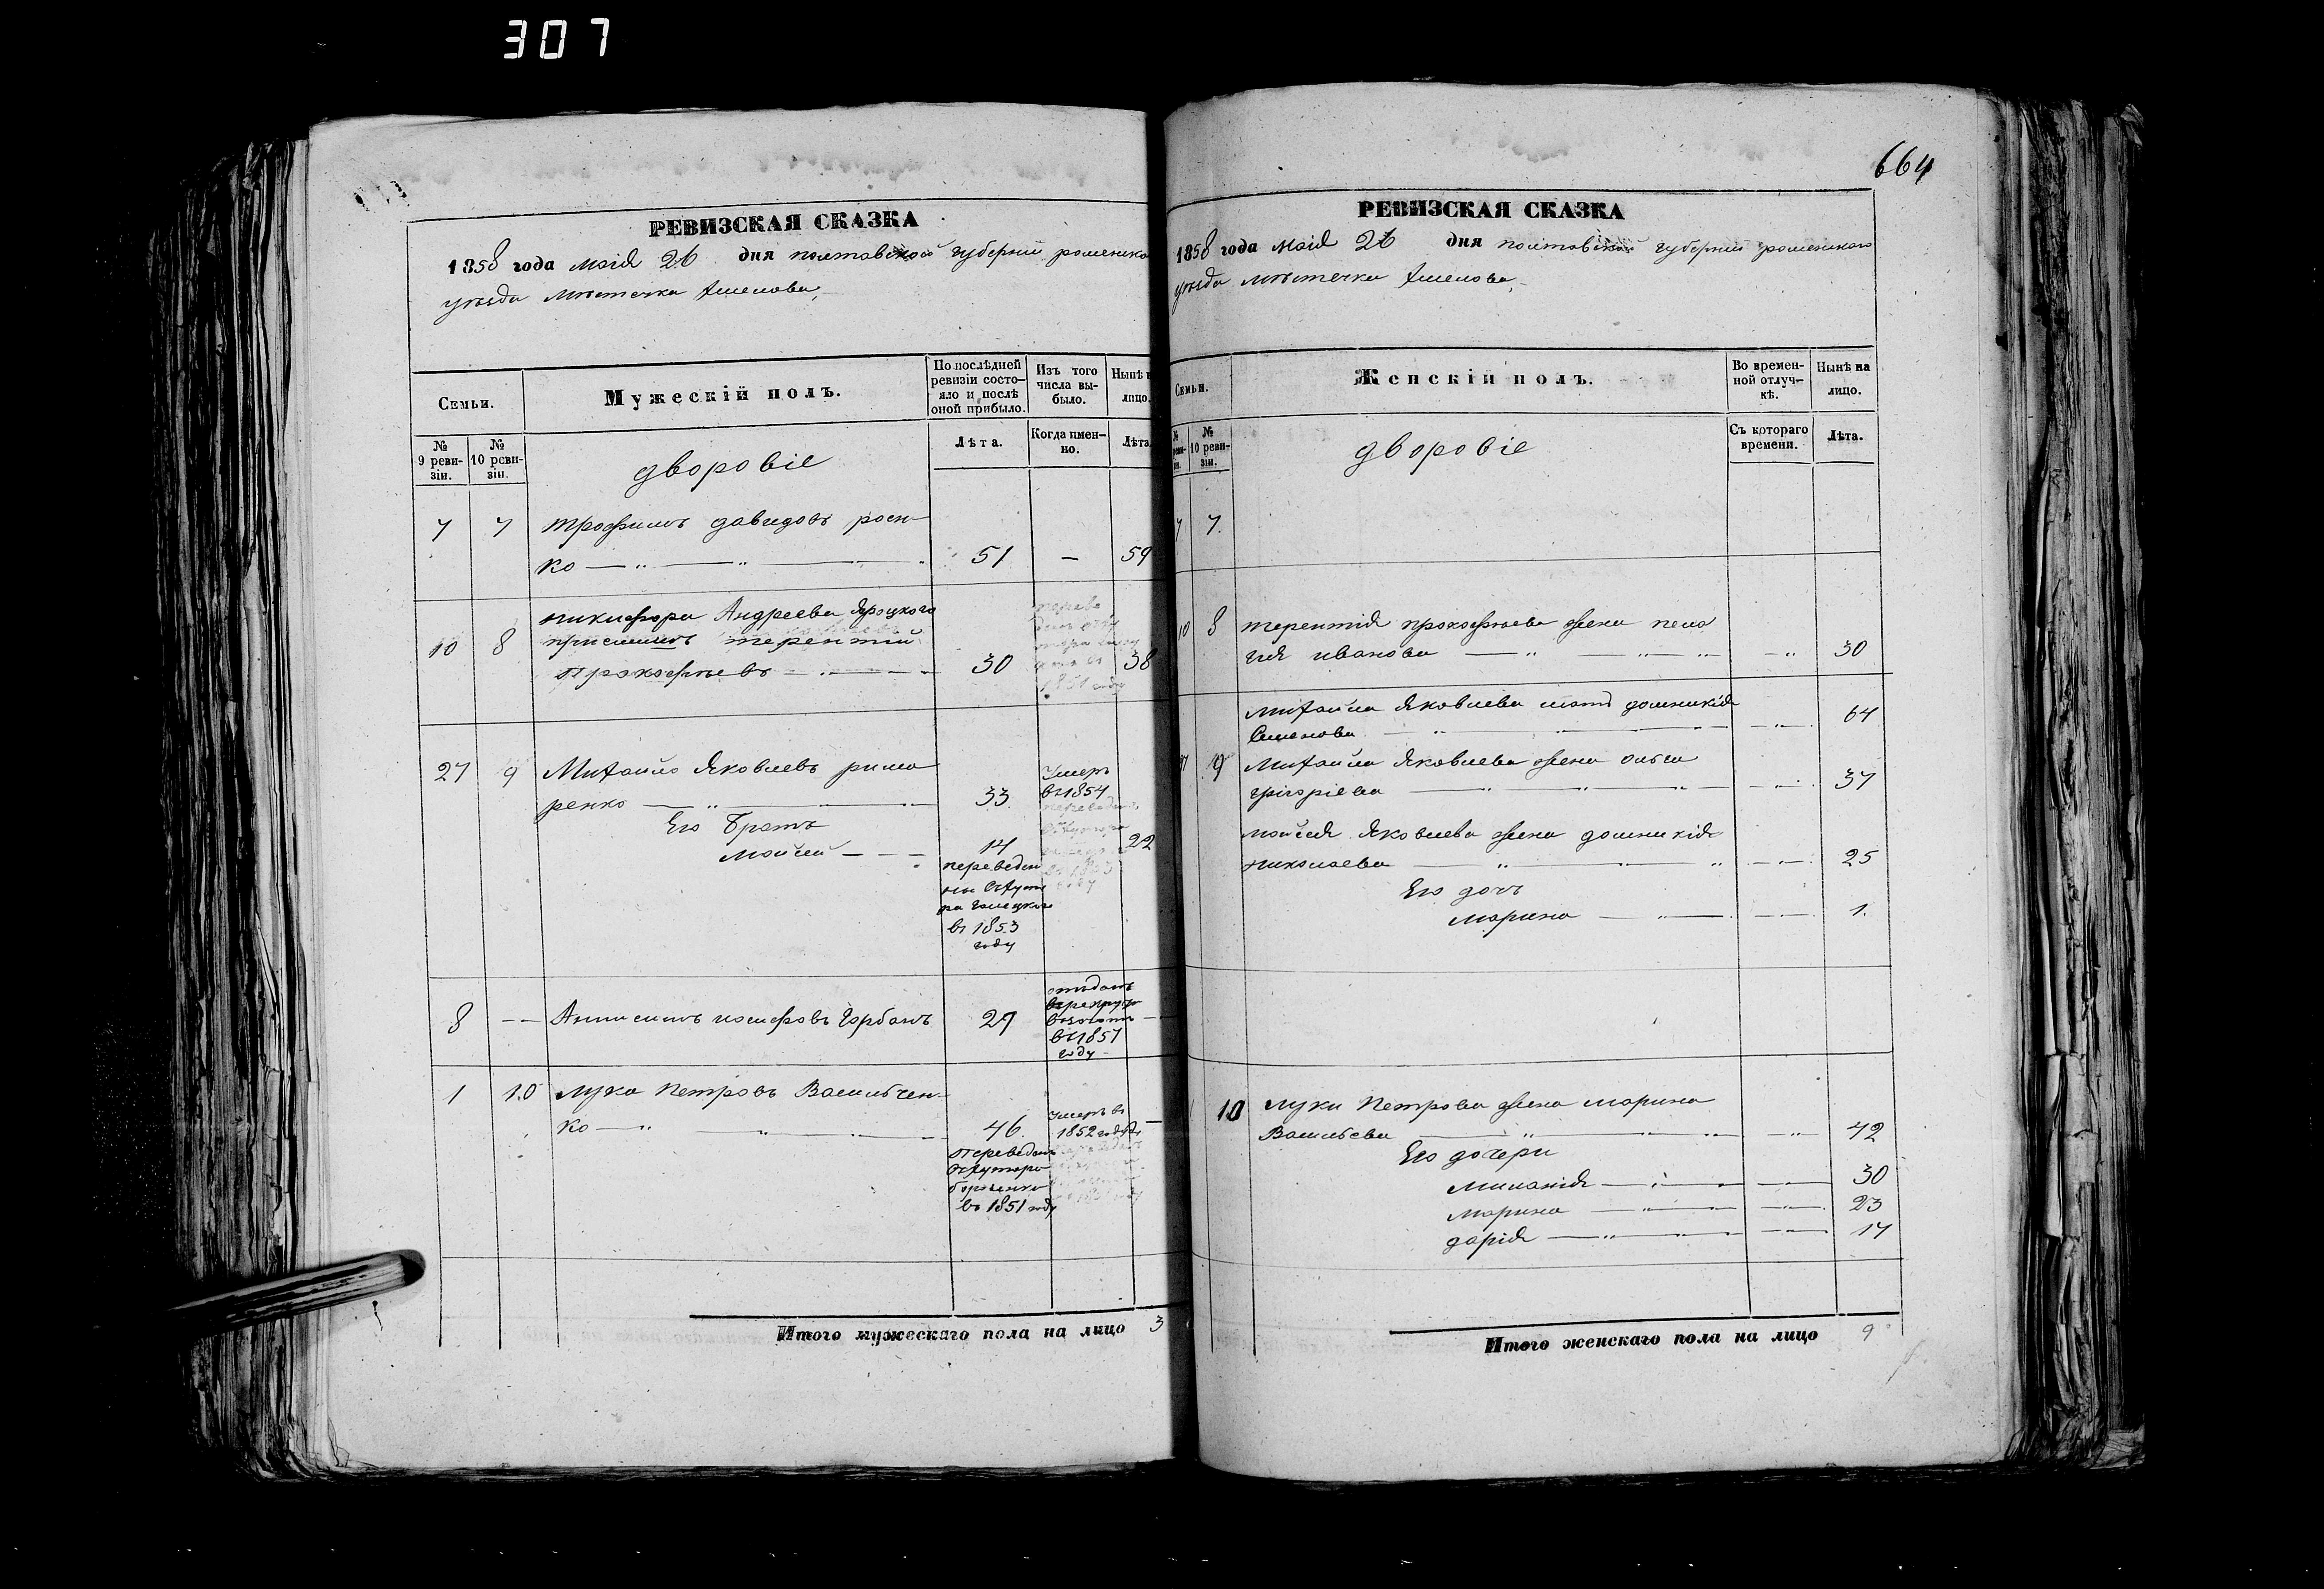 307
664
РЕВИЗСКАЯ СКАЗКА
1858 года маія 26 дня полтавской губерніи роменска
уѣзда мѣстечка
Семьи.
Мужескій полъ.
По послѣдней ревизіи состо-яло и послѣ оной прибыло.
Изъ того числа вы-было.
Нынѣ
лицо.
№ 9 реви-зіи.
№ 10 реви-зіи.
дворовіе
Лѣта.
Когда имен-но.
Лѣта
7 7 трофимъ давидовъ
ко 51 — 59
никифора Андреева Яроцкого
10 8 приемишъ терентій
прокофьевъ 30 38
1851 году
27 9 Михайло Яковлевъ рима
ренко 33 Умеръ
въ 1854
Его братъ
Моисей 14 22
переведен
ны съ хуто
ра
въ 1853
году
8 — Анисимъ иосифовъ Горбань 29 отъданъ
въ рекруты
въ 1857
году
1 10 лука петровъ Васильчен
ко 46 умеръ въ
1852 году
переведенъ
съ хутора
въ 1851 году
Итого мужескаго пола на лицо 3
РЕВИЗСКАЯ СКАЗКА
1858 года маія 26 дня полтавской губерніи роменскаго
уѣзда мѣстечка
Семьи.
Женскій полъ.
Во времен-ной отлуч-кѣ.
Нынѣ на лицо.
№ 10 реви-зіи.
дворовіе
Съ котораго времени.
Лѣта.
7 7.
10 8 терентія прокофьева жена пела
гія иванова 30
Михайла Яковлева мать домникія
Семенова 64
9 Михайла Яковлева жена ольга
григоріева 37
моисея Яковлева жена домникія
николаева 25
Его дочь
марина 1.
10 луки Петрова жена марина
Васильева 42
Его дочери
Миланія 30
Марина 23
дарія 17
Итого женскаго пола на лицо 9